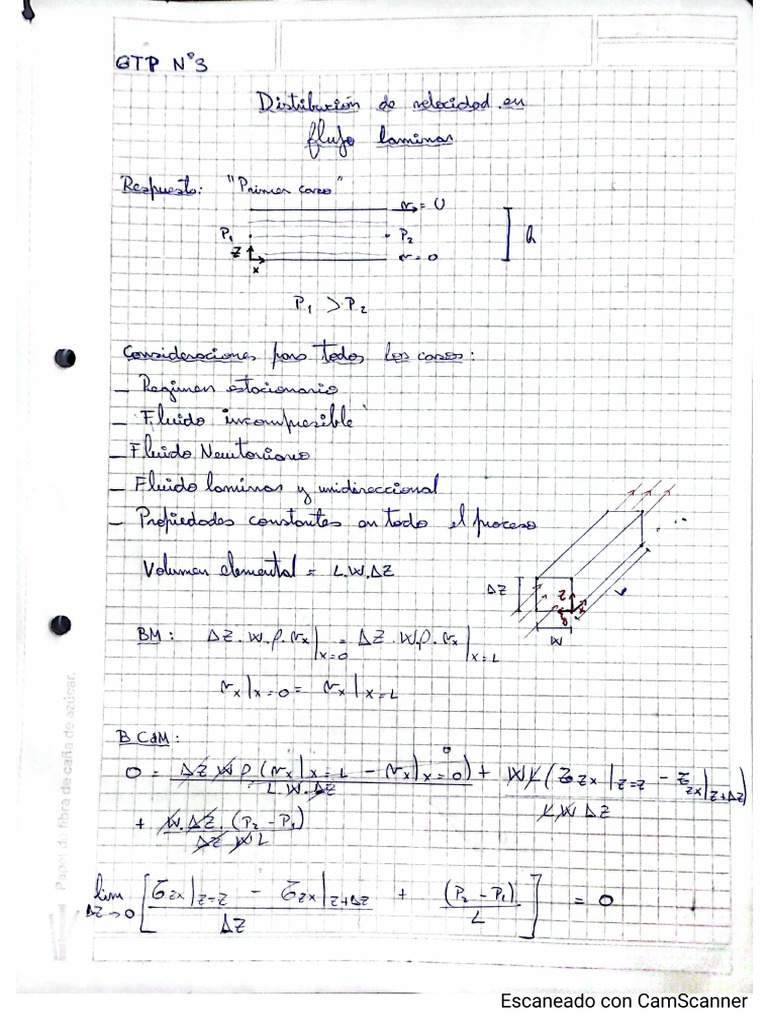 GTP N°3
Distribución de velocidad en
flujo laminar
Respuesta: "Primer caso"
v = U
P₁ P₂ h
Z
x v = 0
P₁ > P₂
Consideraciones para todos los casos:
– Regimen estacionario
– Fluido incompresible
– Fluido Newtoniano
– Fluido laminar y unidireccional
– Propiedades constantes en todo el proceso
Volumen elemental = L.W.ΔZ
ΔZ
W
BM: ΔZ.W.ρ.vₓ|ₓ₌₀ = ΔZ.W.ρ.vₓ|ₓ₌L
vₓ|ₓ₌₀ = vₓ|ₓ₌L
B CdM:
0 = ΔZ W ρ (vₓ|ₓ₌L − vₓ|ₓ₌₀) / L.W.ΔZ + WL (τzx|z=z − τzx|z+Δz) / LWΔZ
0
+ W.ΔZ.(P₂−P₁) / ΔZ W L
lim ΔZ→0 [ (τzx|z=z − τzx|z+Δz) / ΔZ + (P₂−P₁) / L ] = 0
Papel de fibra de caña de azúcar.
Escaneado con CamScanner